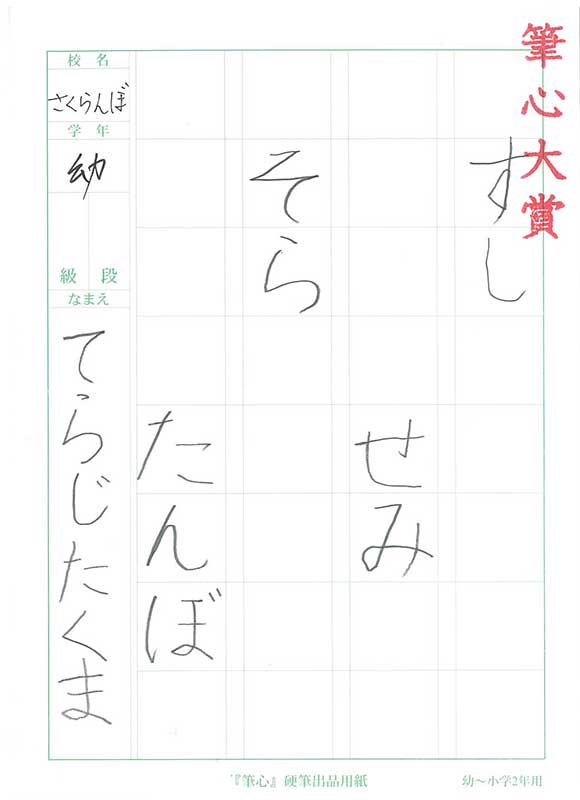 筆心大賞
すし
せみ
そら
たんぼ
校名
さくらんぼ
学年
幼
級段
なまえ
てらじたくま
『筆心』硬筆出品用紙
幼～小学2年用